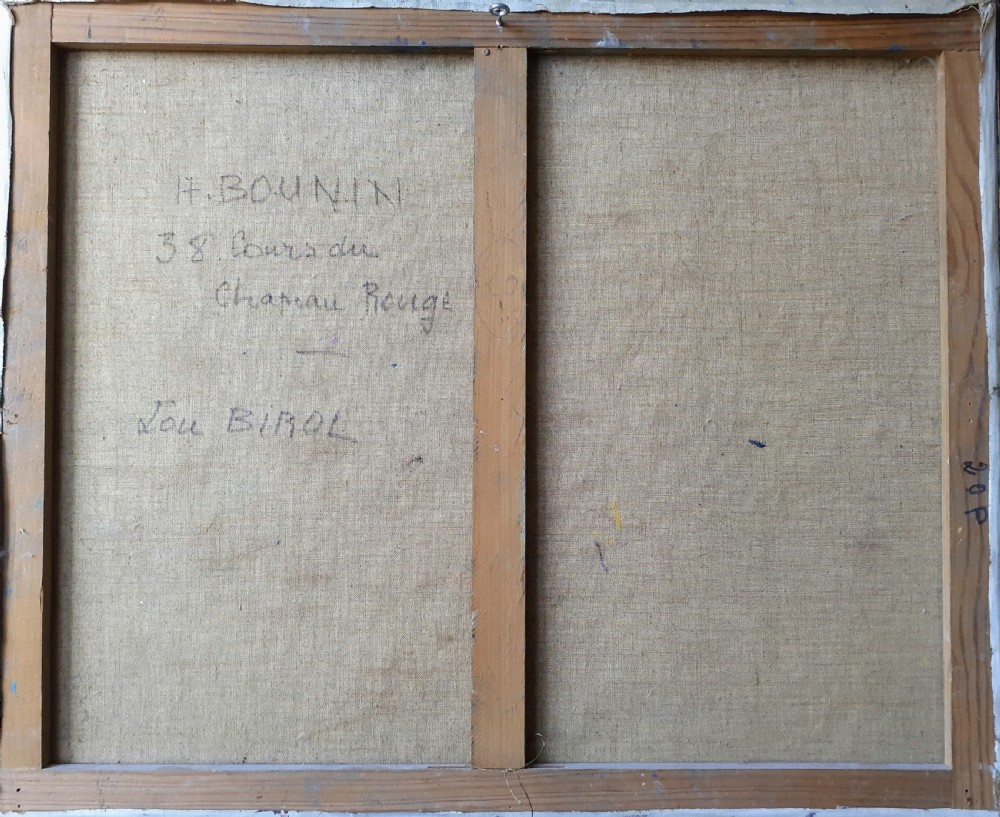 H. BOUNIN
38. Cours du
Chapeau Rouge
Lou BIROL
20P